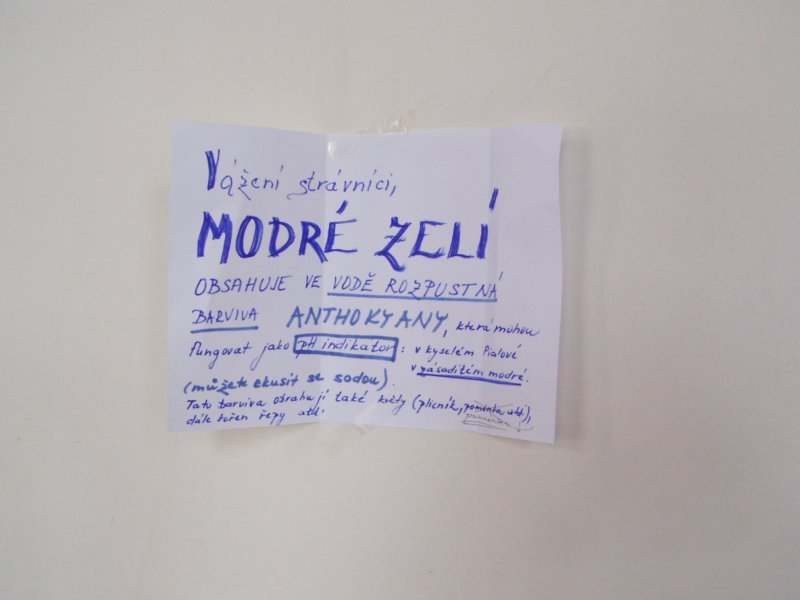 Vážení strávníci,
MODRÉ ZELÍ
OBSAHUJE VE VODĚ ROZPUSTNÁ
BARVIVA ANTHOKYANY, která mohou
fungovat jako pH indikator: v kyselém fialové
v zásaditém modré.
(můžete zkusit se sodou).
Tato barviva obsahují také květy (plicník, pomněnka atd.),
dále kořen řepy atd.